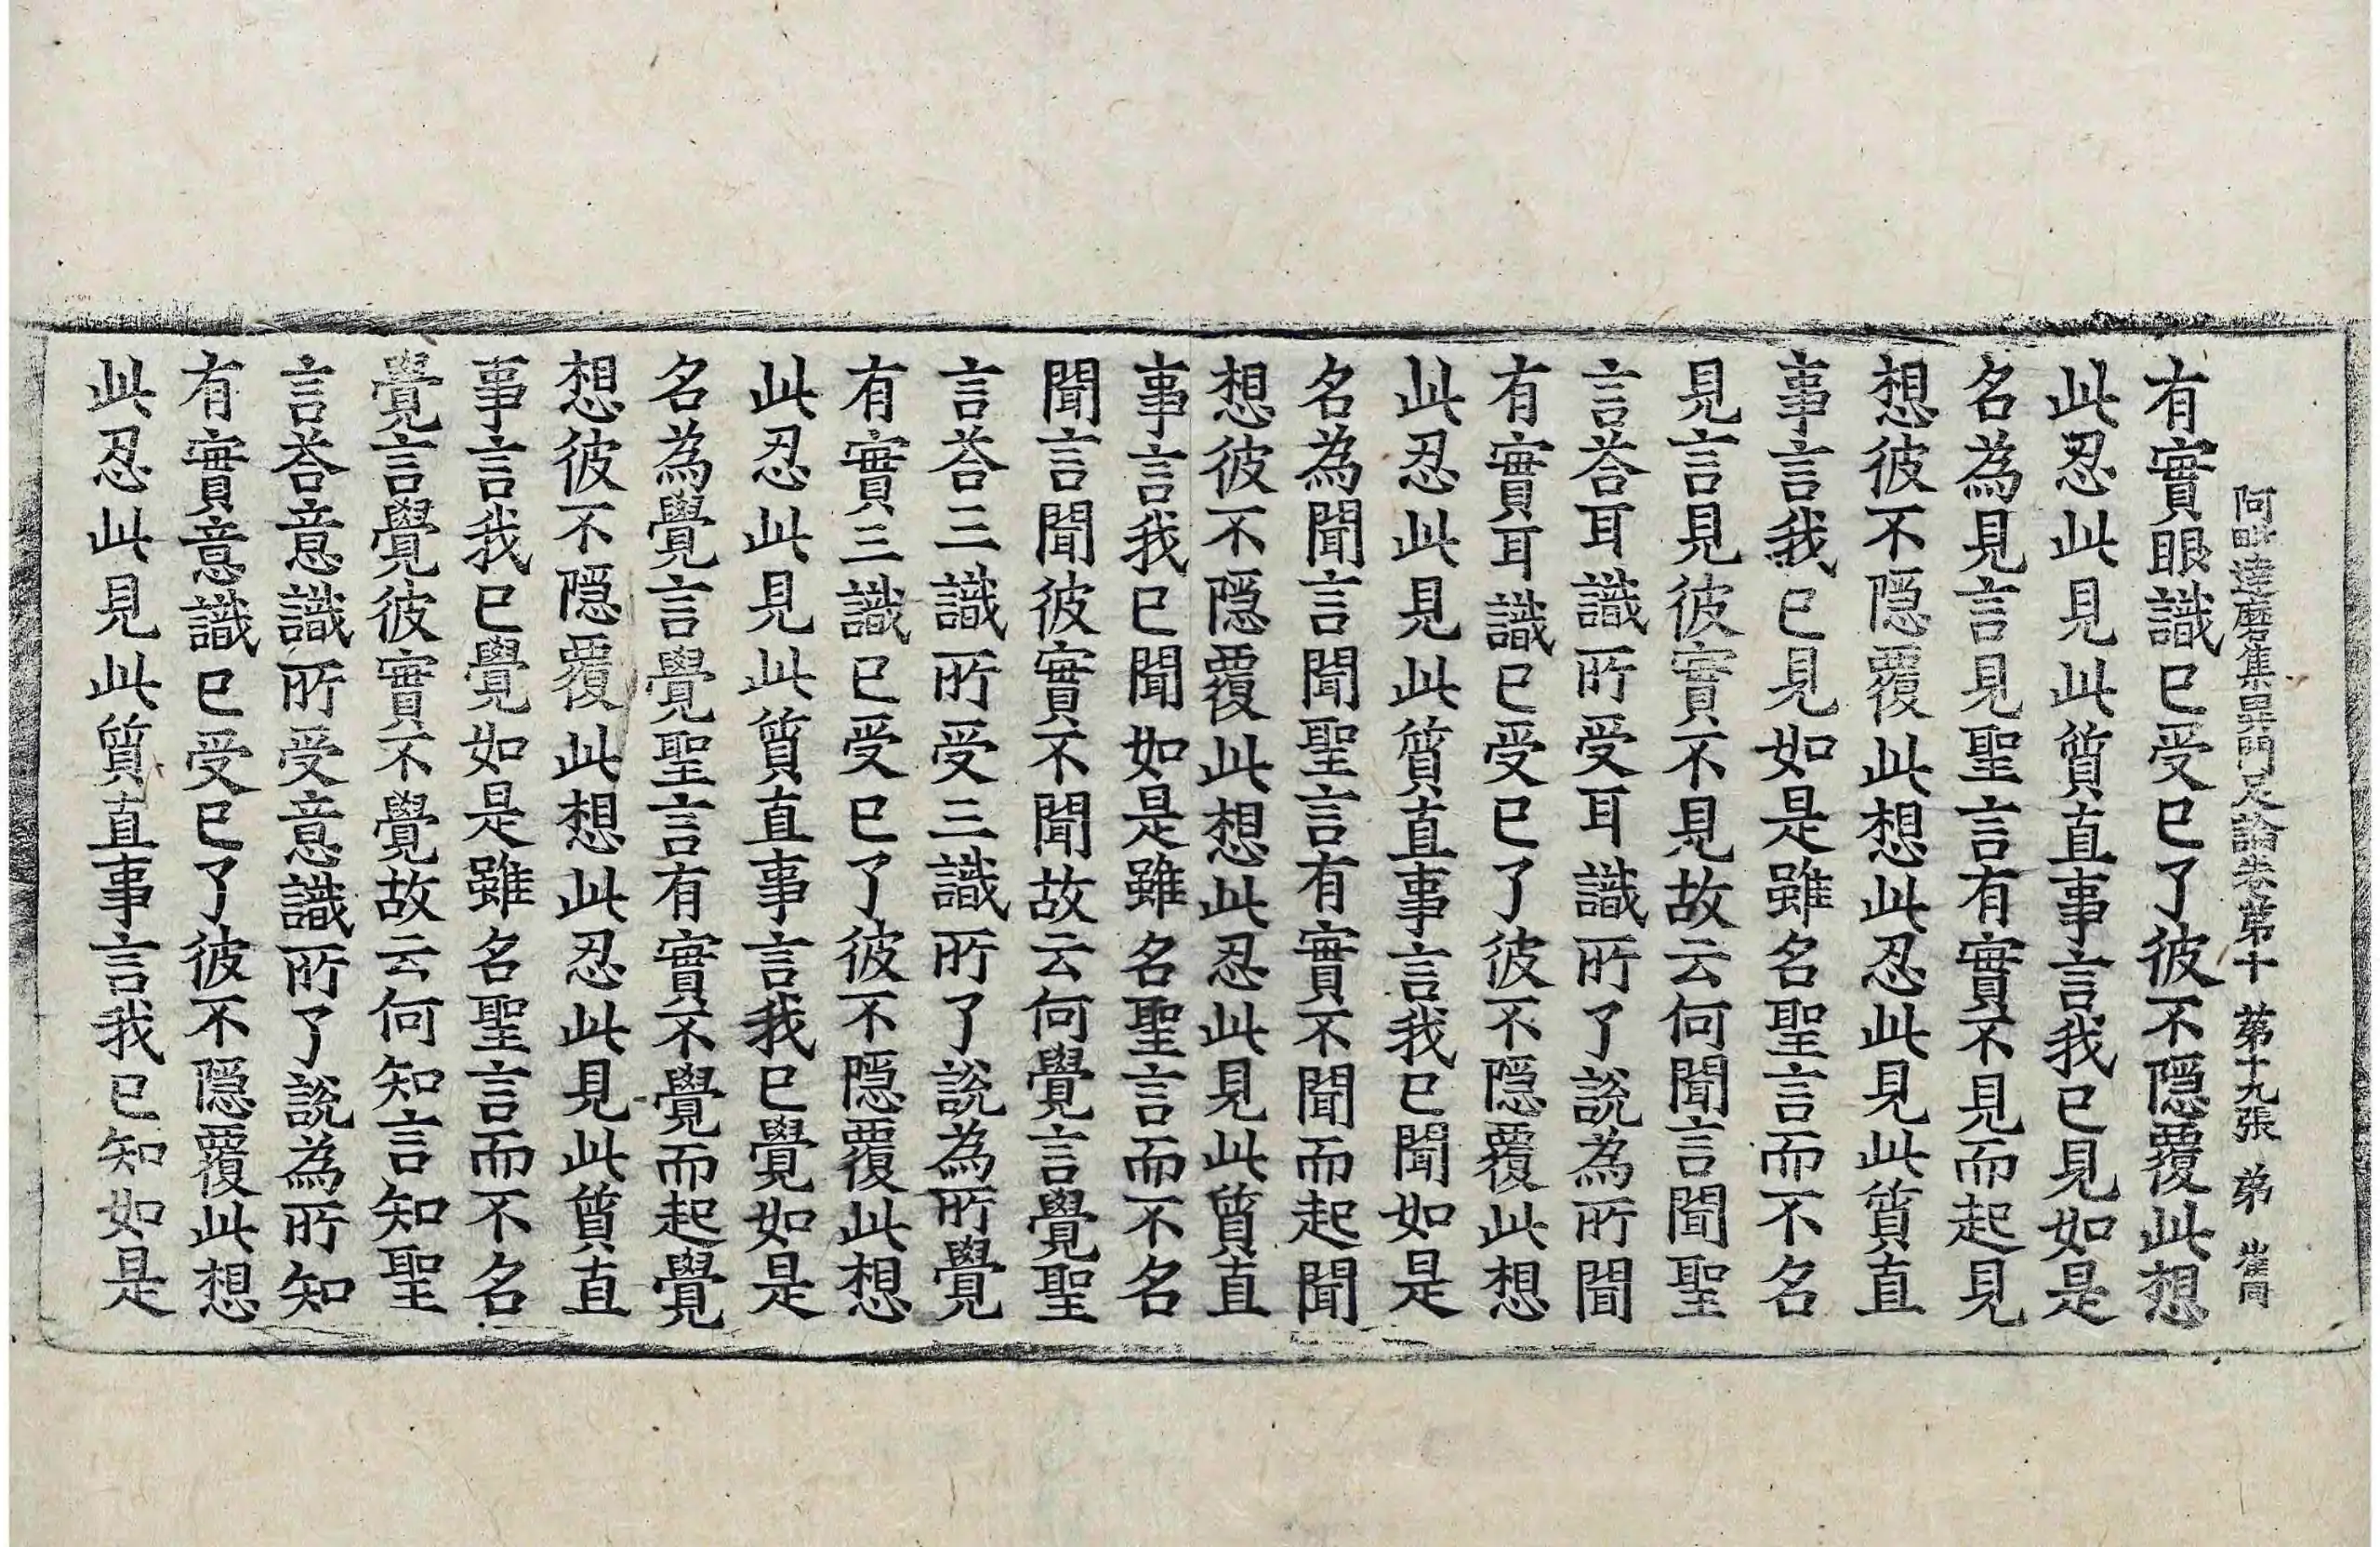 阿毗達磨集異門足論卷苐十 苐十九張 弟 崔同
有實眼識已受已了彼不隠覆此想
此忍此見此質直事言我已見如是
名為見言見聖言有實不見而起見
想彼不隠覆此想此忍此見此質直
事言我已見如是雖名聖言而不名
見言見彼實不見故云何聞言聞聖
言荅耳識所受耳識所了說為所聞
有實耳識已受已了彼不隠覆此想
此忍此見此質直事言我已聞如是
名為聞言聞聖言有實不聞而起聞
想彼不隠覆此想此忍此見此質直
事言我已聞如是雖名聖言而不名
聞言聞彼實不聞故云何覺言覺聖
言荅三識所受三識所了說為所覺
有實三識已受已了彼不隠覆此想
此忍此見此質直事言我已覺如是
名為覺言覺聖言有實不覺而起覺
想彼不隠覆此想此忍此見此質直
事言我已覺如是雖名聖言而不名
覺言覺彼實不覺故云何知言知聖
言荅意識所受意識所了說為所知
有實意識已受已了彼不隠覆此想
此忍此見此質直事言我已知如是